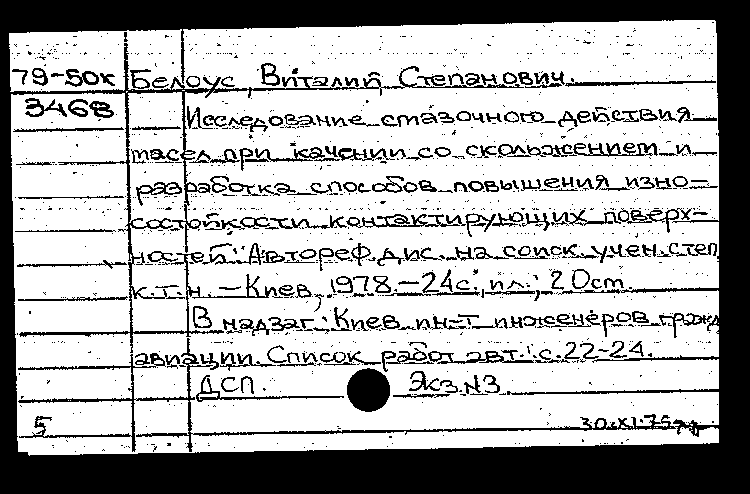 79-50к Белоус, Виталий Степанович.
3468 Исследование смазочного действия
масел при качении со скольжением и
разработка способов повышения изно-
состойкости контактирующих поверх-
ностей: Автореф. дис. на соиск. учен. степ
к.т.н. — Киев, 1978. — 24с., ил.; 20см.
В надзаг.: Киев. ин-т инженеров гражд
авиации. Список работ авт.: с. 22-24.
ДСП. Экз. N3.
5